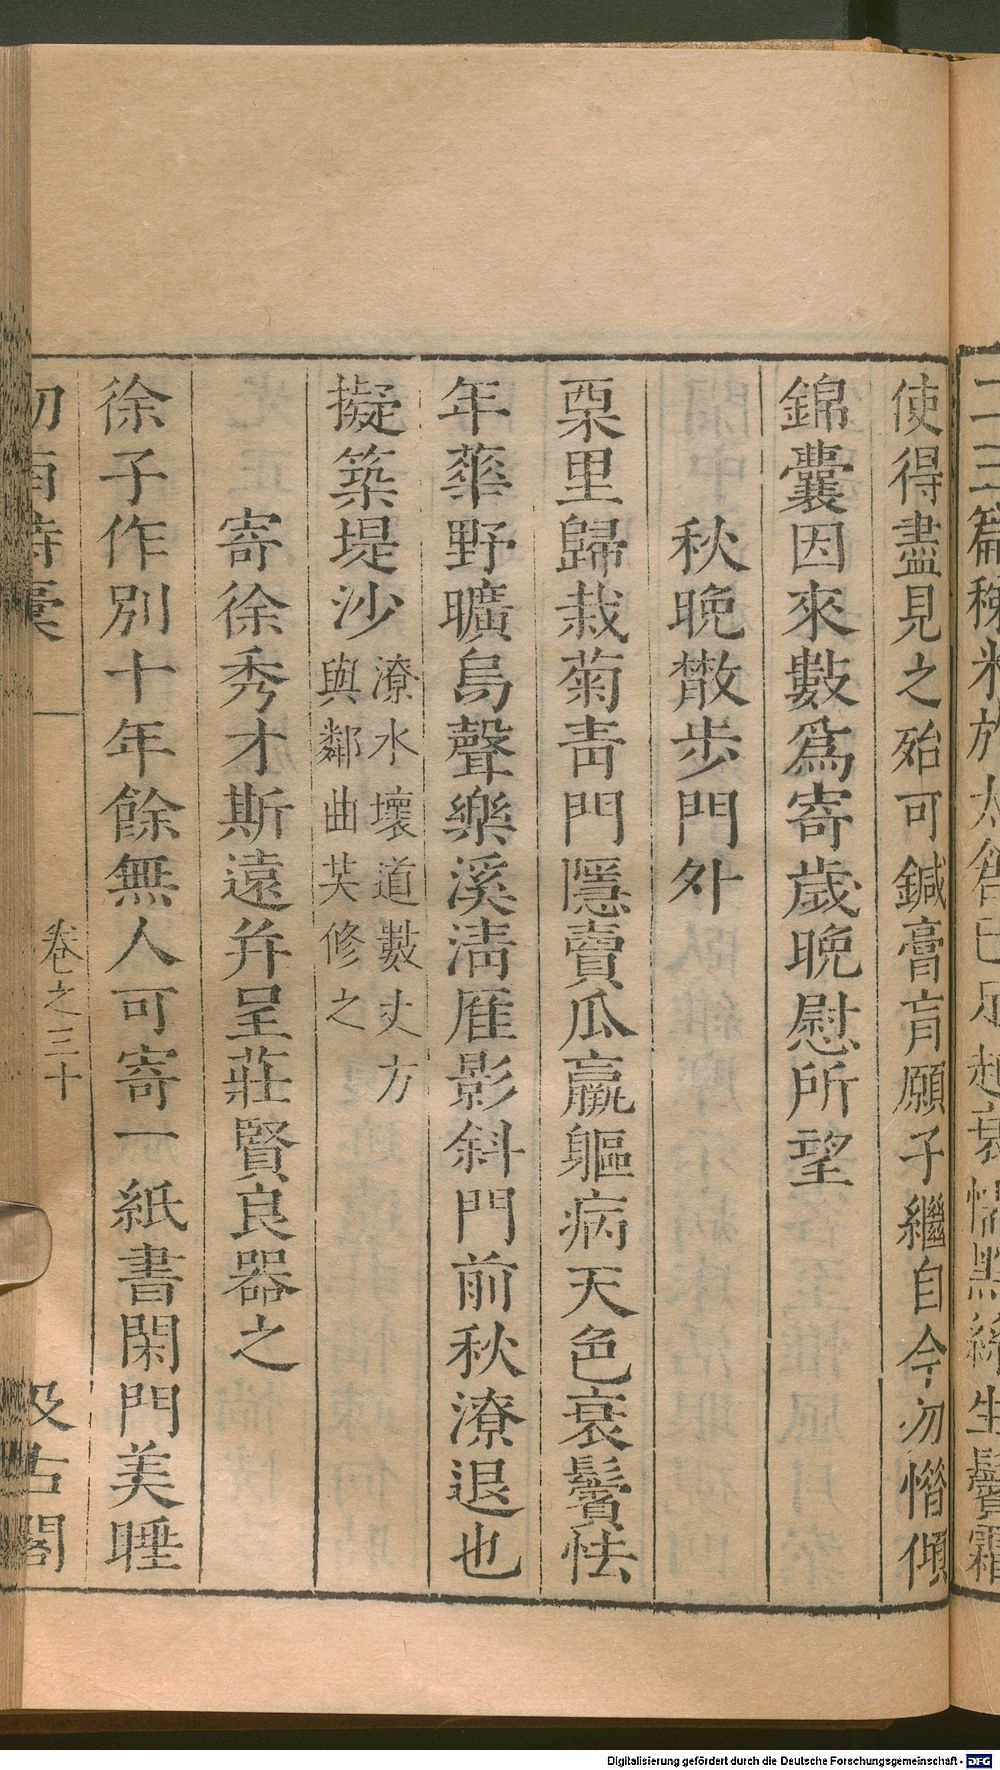 使得盡見之殆可鍼膏肓願子繼自今勿惜傾
錦囊因來數爲寄歲晚慰所望
秋晚散步門外
栗里歸栽菊靑門隱賣瓜羸軀病天色衰鬢怯
年華野曠烏聲樂溪淸雁影斜門前秋潦退也
擬築堤沙
潦水壞道數丈方
與鄰曲共修之
寄徐秀才斯遠幷呈莊賢良器之
徐子作別十年餘無人可寄一紙書閑門美睡
卷之三十
汲古閣
Digitalisierung gefördert durch die Deutsche Forschungsgemeinschaft - DFG